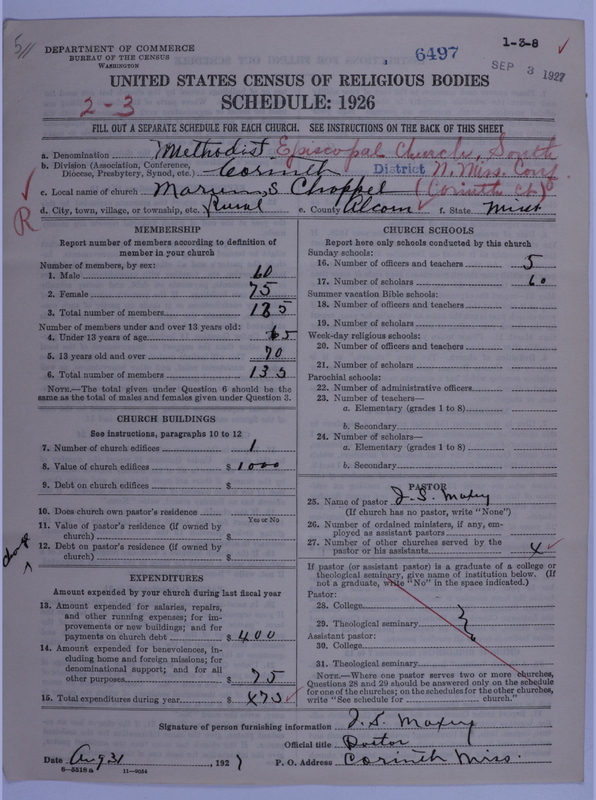 5//
DEPARTMENT OF COMMERCE
BUREAU OF THE CENSUS
WASHINGTON
6497
1-3-8
SEP 3 1927
UNITED STATES CENSUS OF RELIGIOUS BODIES
2-3
SCHEDULE: 1926
FILL OUT A SEPARATE SCHEDULE FOR EACH CHURCH. SEE INSTRUCTIONS ON THE BACK OF THIS SHEET
a. Denomination Methodist Episcopal Church, South
b. Division (Association, Conference, Diocese, Presbytery, Synod, etc.) Corinth District N. Miss. Conf
c. Local name of church Chappel (Corinth Ct)
R
d. City, town, village, or township, etc. Rural e. County Alcorn f. State Miss
MEMBERSHIP
Report number of members according to definition of
member in your church
Number of members, by sex:
1. Male 60
2. Female 75
3. Total number of members 135
Number of members under and over 13 years old:
4. Under 13 years of age 65
5. 13 years old and over 70
6. Total number of members 135
NOTE.—The total given under Question 6 should be the
same as the total of males and females given under Question 3.
CHURCH BUILDINGS
See instructions, paragraphs 10 to 12
7. Number of church edifices 1
8. Value of church edifices $ 1000
9. Debt on church edifices $
10. Does church own pastor's residence
Yes or No
11. Value of pastor's residence (if owned by
church) $
12. Debt on pastor's residence (if owned by
church) $
EXPENDITURES
Amount expended by your church during last fiscal year
13. Amount expended for salaries, repairs,
and other running expenses; for im-
provements or new buildings; and for
payments on church debt $ 400
14. Amount expended for benevolences, in-
cluding home and foreign missions; for
denominational support; and for all
other purposes $ 75
15. Total expenditures during year $ 475
CHURCH SCHOOLS
Report here only schools conducted by this church
Sunday schools:
16. Number of officers and teachers 5
17. Number of scholars 60
Summer vacation Bible schools:
18. Number of officers and teachers
19. Number of scholars
Week-day religious schools:
20. Number of officers and teachers
21. Number of scholars
Parochial schools:
22. Number of administrative officers
23. Number of teachers—
a. Elementary (grades 1 to 8)
b. Secondary
24. Number of scholars—
a. Elementary (grades 1 to 8)
b. Secondary
PASTOR
25. Name of pastor J. S. Maxey
(If church has no pastor, write "None")
26. Number of ordained ministers, if any, em-
ployed as assistant pastors
27. Number of other churches served by the
pastor or his assistants 4
If pastor (or assistant pastor) is a graduate of a college or
theological seminary, give name of institution below. (If
not a graduate, write "No" in the space indicated.)
Pastor:
28. College
29. Theological seminary
Assistant pastor:
30. College
31. Theological seminary
NOTE.—Where one pastor serves two or more churches,
Questions 28 and 29 should be answered only on the schedule
for one of the churches; on the schedules for the other churches,
write "See schedule for church."
Signature of person furnishing information J. S. Maxey
Official title Pastor
Date Aug 31, 1927 P. O. Address Corinth Miss.
6-5518a 11-9054